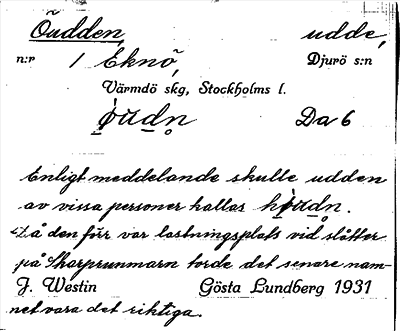 Öudden, udde,
n:r 1 Eknö, Djurö s:n
Värmdö skg, Stockholms l.
Da 6
Enligt meddelande skulle udden
av vissa personer kallas
Då den förr var lastningsplats vid slåtter
på Skarprunmarn torde det senare nam-
J. Westin Gösta Lundberg 1931
net vara det riktiga.